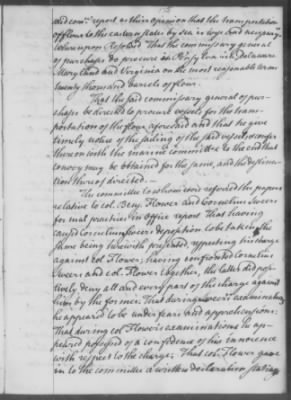 said comee report as their opinion that the transportation
of flour to the eastern states by sea is legal and necessary.
Whereupon Resolved That the commissary general
of purchases do procure in Pensylvania Delaware
Maryland and Virginia on the most reasonable terms
twenty thousand barrels of flour.
That the said commissary general of pur-
chases be directed to procure vessels for the trans-
portation of the flour aforesaid and that he give
timely notice of the sailing of the said vessels & confer
thereon with the marine committee to the end that
convoy may be obtained for the same, and the destina-
tion thereof directed.
The committee to whom were referred the papers
relative to col. Benj. Flower and Cornelius Sweers
for mal practices in office report That having
caused Cornelius Sweers deposition to be taken the
same being herewith presented, respecting his charge
against col Flower, having confronted Cornelius
Sweers and col. Flower together, the latter did posi-
tively deny all and every part of the charge against
him by the former. That during Sweers's examination
he appeared to be under fears and apprehensions:
That during col Flower's examinations he ap-
peared possessed of a confidence of his innocence
with respect to the charge; That col. Flower gave
in to the committee a written declaration